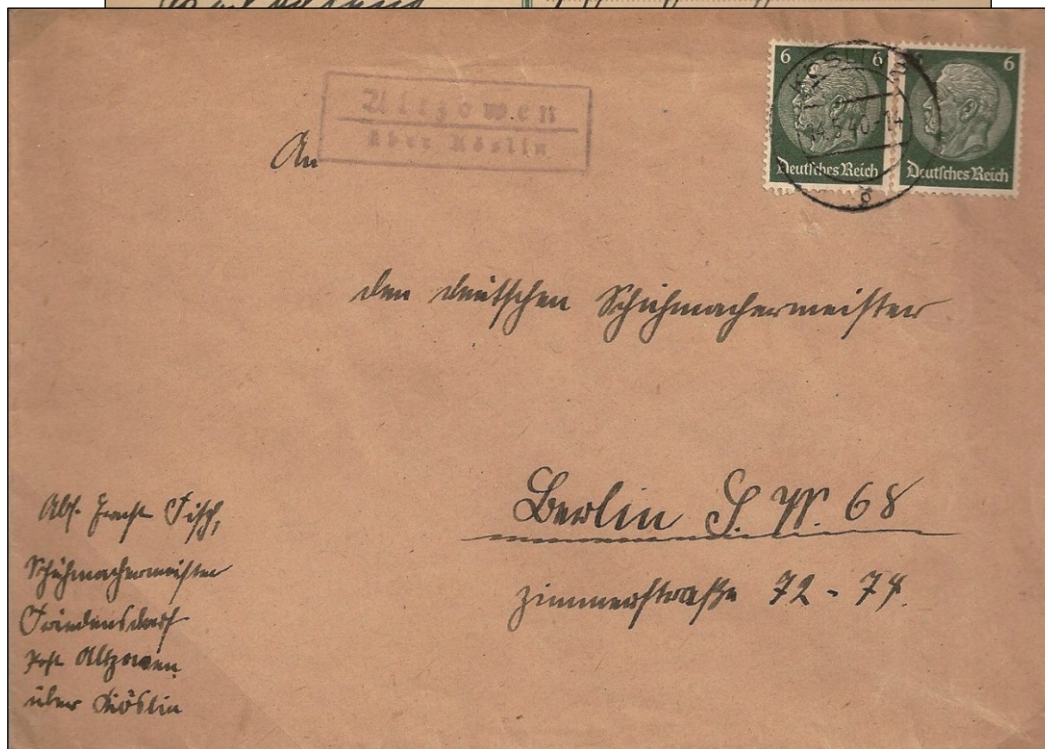 Altzowen
über Köslin
6 6 6
Deutsches Reich Deutsches Reich
An
den deutschen Schuhmachermeister
Berlin S.W. 68
Zimmerstraße 72-74.
Abs. Fisch,
Schuhmachermeister
Friedensdorf
Post Altzowen
über Köslin